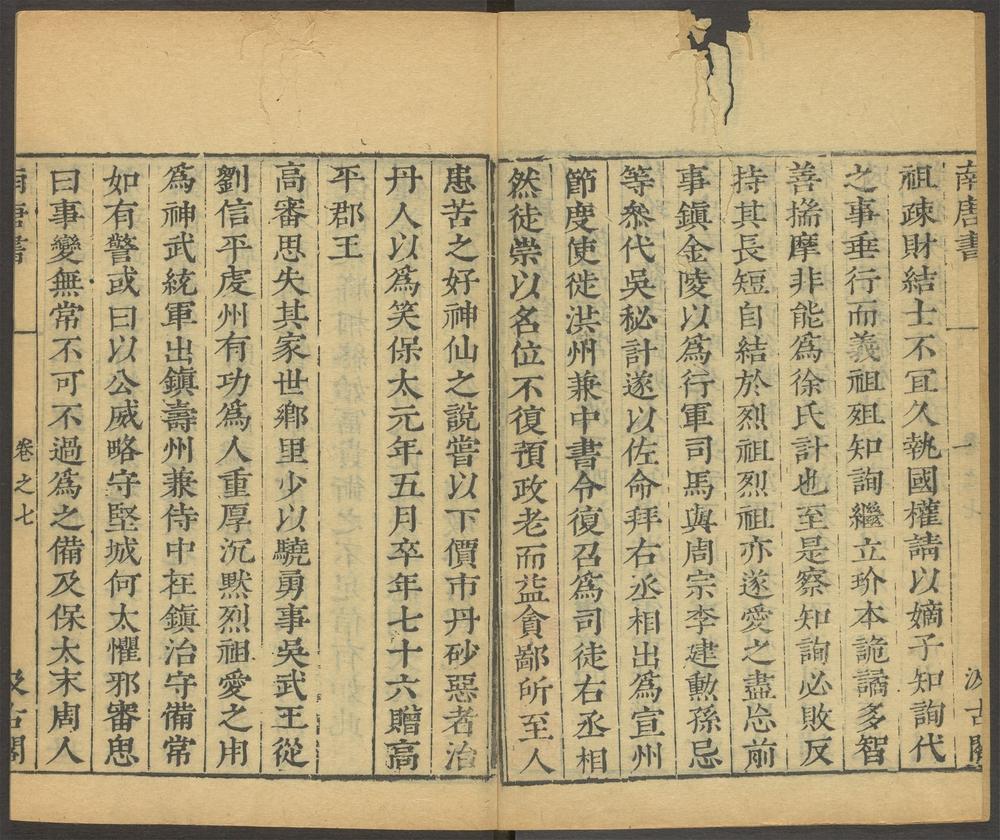 南唐書 一 汲古閣
祖疎財結士不冝久執國權請以嫡子知詢代
之事垂行而義祖殂知詢繼立玠本詭譎多智
善揣摩非能爲徐氏計也至是察知詢必敗反
持其長短自結於烈祖烈祖亦遂愛之盡忘前
事鎭金陵以爲行軍司馬與周宗李建勲孫忌
等叅代吳秘計遂以佐命拜右丞相出爲宣州
節度使徙洪州兼中書令復召爲司徒右丞相
然徒崇以名位不復預政老而益貪鄙所至人
患苦之好神仙之說嘗以下價市丹砂惡者治
丹人以爲笑保太元年五月卒年七十六贈高
平郡王
高審思失其家世鄕里少以驍勇事吳武王從
劉信平虔州有功爲人重厚沉默烈祖愛之用
爲神武統軍出鎭壽州兼侍中在鎭治守備常
如有警或曰以公威略守堅城何太懼邪審思
曰事變無常不可不過爲之備及保太末周人
南唐書 卷之七 汲古閣